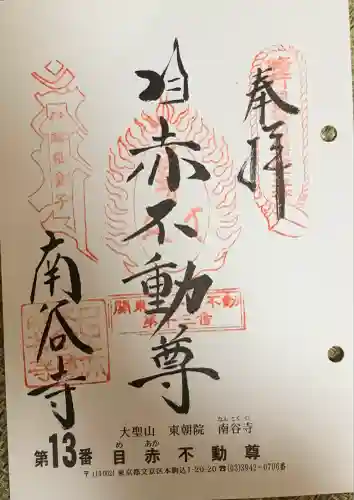 奉拝
目赤不動尊
南谷寺
関東 不動
第十三番
大聖山 東朝院 南谷寺
なんこくじ
第13番 目赤不動尊
め あか
東京都文京区本駒込1-20-20 ☎(03)3942-0706番